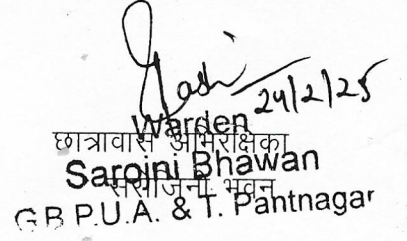 24/2/25
Warden
छात्रावास अभिरक्षिका
Sarojini Bhawan
सरोजनी भवन
G.B.P.U.A. & T. Pantnagar